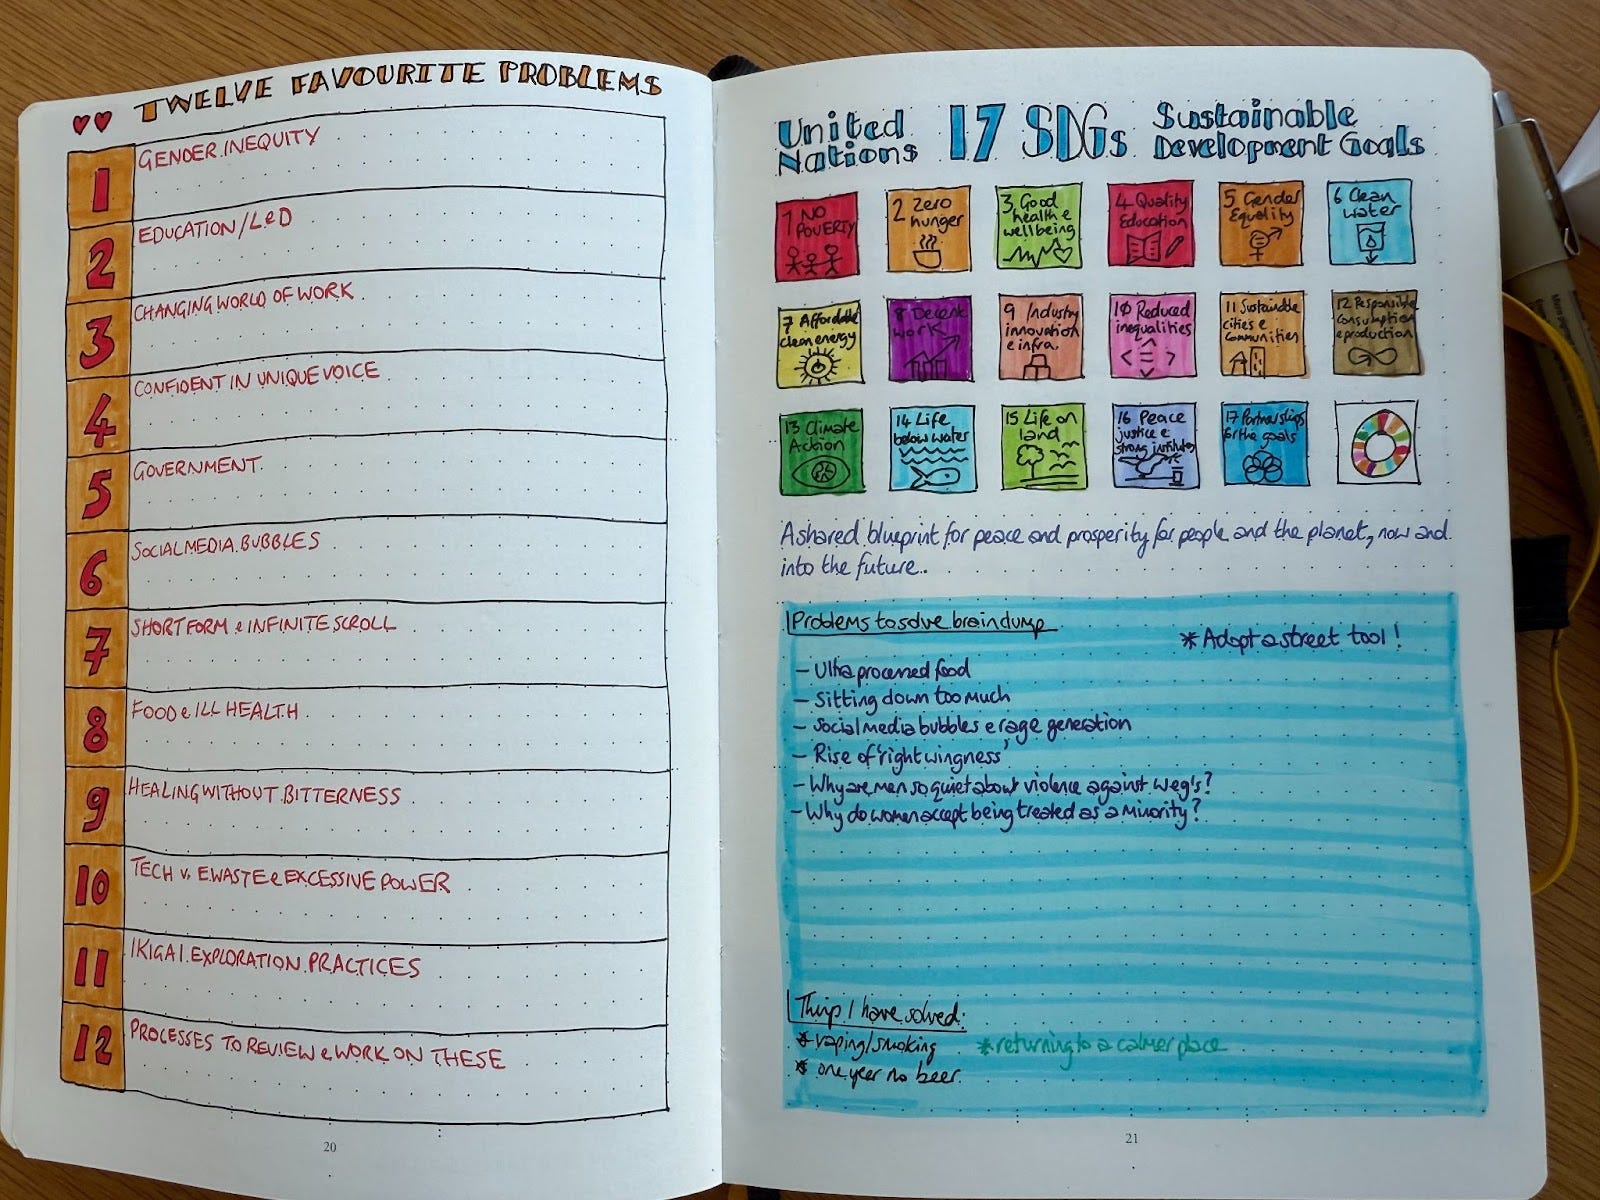 TWELVE FAVOURITE PROBLEMS
1 GENDER INEQUITY
2 EDUCATION/L&D
3 CHANGING WORLD OF WORK
4 CONFIDENT IN UNIQUE VOICE
5 GOVERNMENT
6 SOCIAL MEDIA BUBBLES
7 SHORT FORM & INFINITE SCROLL
8 FOOD & ILL HEALTH
9 HEALING WITHOUT BITTERNESS
10 TECH V. EWASTE & EXCESSIVE POWER
11 IKIGAI EXPLORATION PRACTICES
12 PROCESSES TO REVIEW & WORK ON THESE
20
United
Nations
17 SDGs
Sustainable
Development Goals
1 NO
POVERTY
2 Zero
hunger
3 Good
health &
wellbeing
4 Quality
Education
5 Gender
Equality
6 Clean
water
7 Affordable
clean energy
8 Decent
work
9 Industry
innovation
& infra.
10 Reduced
inequalities
11 Sustainable
cities &
communities
12 Responsible
consumption
& production
13 Climate
Action
14 Life
below water
15 Life on
land
16 Peace
justice &
strong institutes
17 Partnerships
for the goals
A shared blueprint for peace and prosperity for people and the planet, now and
into the future..
Problems to solve braindump
* Adopt a street tool!
- Ultra processed food
- Sitting down too much
- Social media bubbles & rage generation
- Rise of 'right wingness'
- Why are men so quiet about violence against W&G's?
- Why do women accept being treated as a minority?
Things I have solved:
* vaping/smoking
* returning to a calmer place
* one year no beer.
21